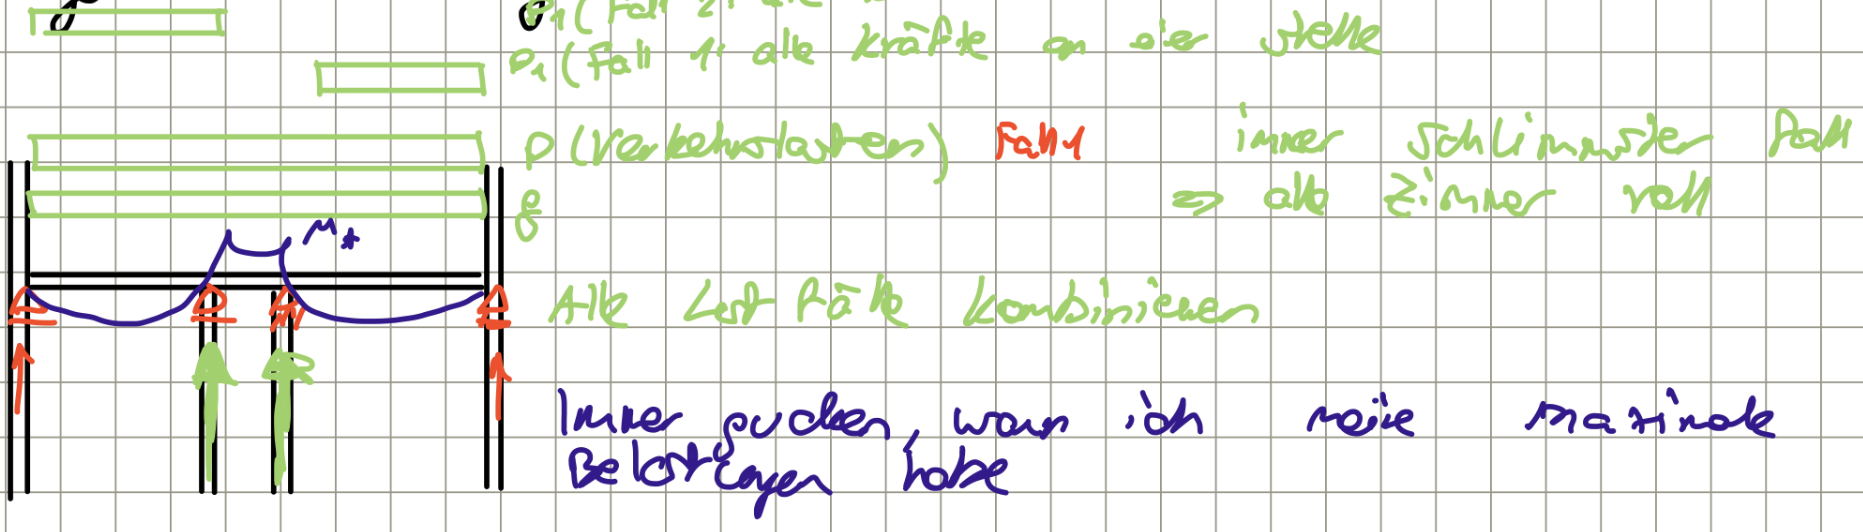 P₁(Fall 2: alle
P₁(Fall 1: alle kräfte an eier stelle
P(Verkehrslasten) Fall 1 immer schlimmster Fall
⇒ alle Zimmer voll
g
M
Alle Lastfälle kombinieren
Immer gucken, wann ich meine maximale
Belastungen habe